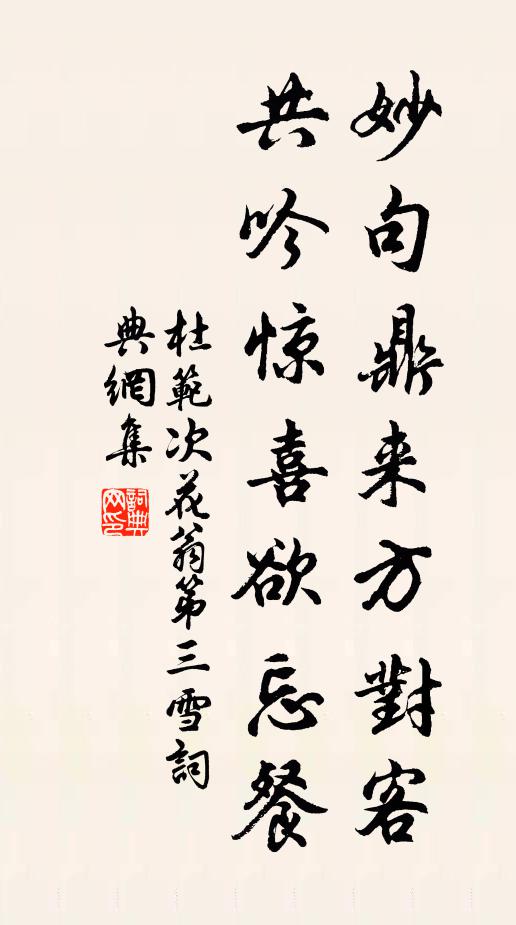 妙句鼎来方對客
共吟惊喜欲忘餐
杜範次花翁第三雪詞
典網集
詞典网印